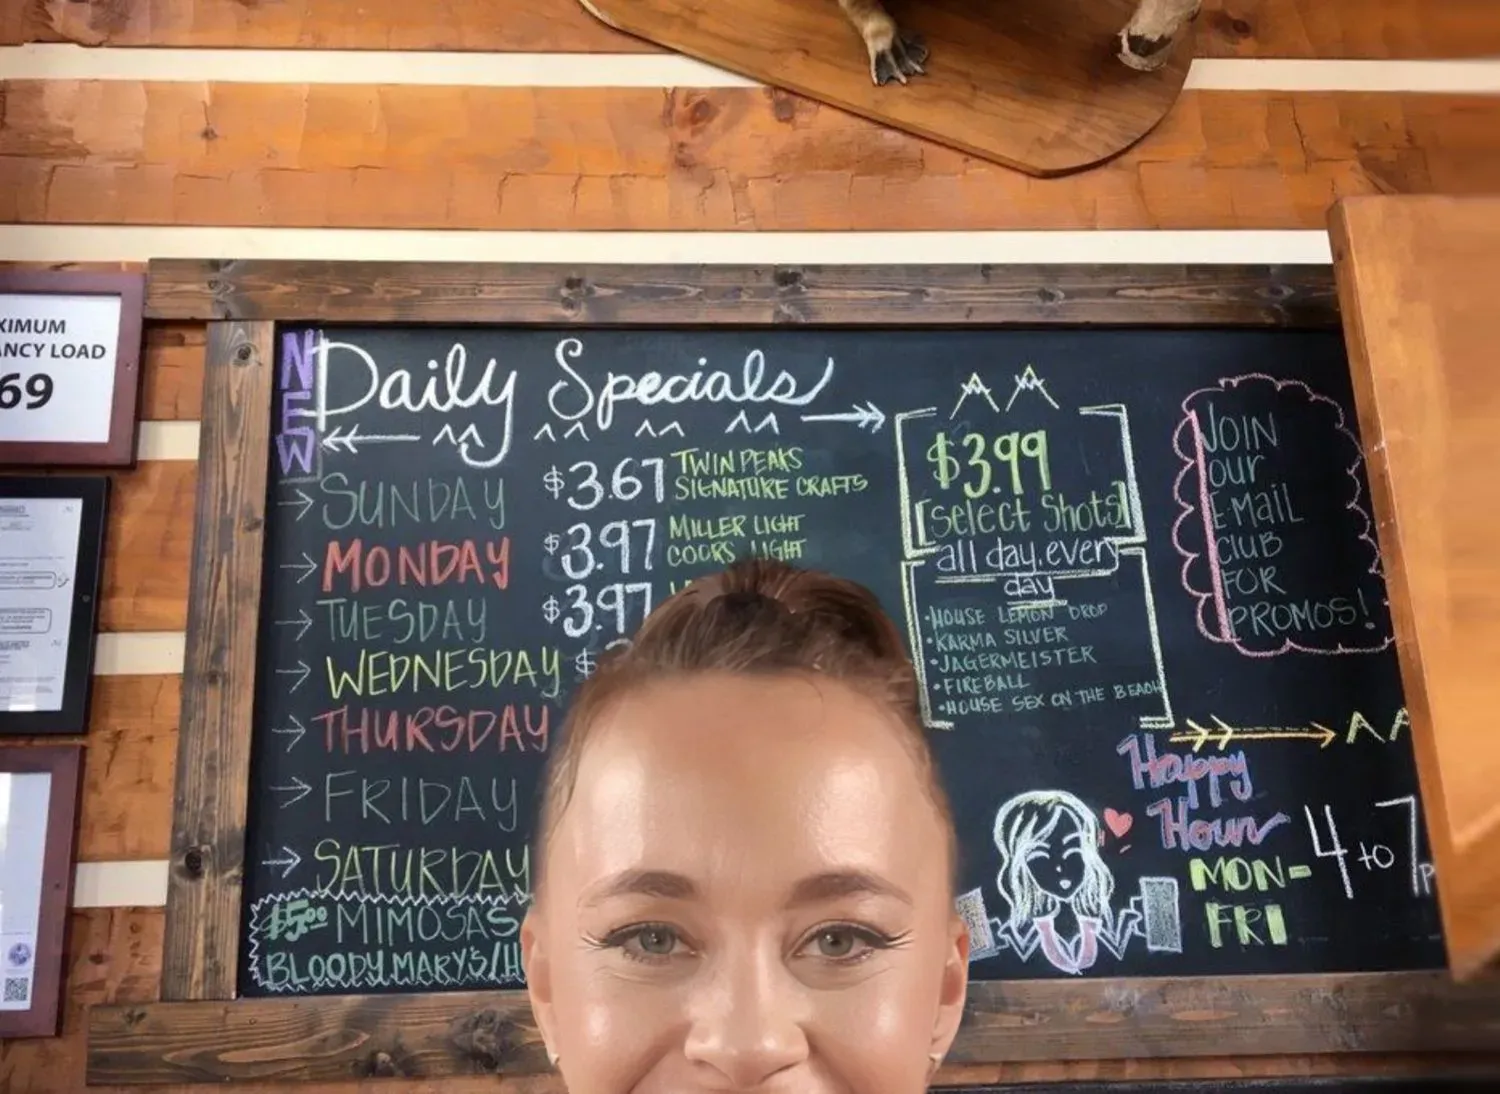 XIMUM
ANCY LOAD
69
NEW
Daily Specials
SUNDAY $3.67 TWIN PEAKS
SIGNATURE CRAFTS
MONDAY $3.97 MILLER LIGHT
COORS LIGHT
TUESDAY $3.97
WEDNESDAY $
THURSDAY
FRIDAY
SATURDAY
$5.00 MIMOSAS
BLOODY MARY'S/H
$3.99
[Select Shots]
all day, every
day
•HOUSE LEMON DROP
•KARMA SILVER
•JAGERMEISTER
•FIREBALL
•HOUSE SEX ON THE BEACH
JOIN
our
E-MaiL
CLUB
FOR
PROMOS!
Happy
Hour
MON-
FRI
4 to 7p